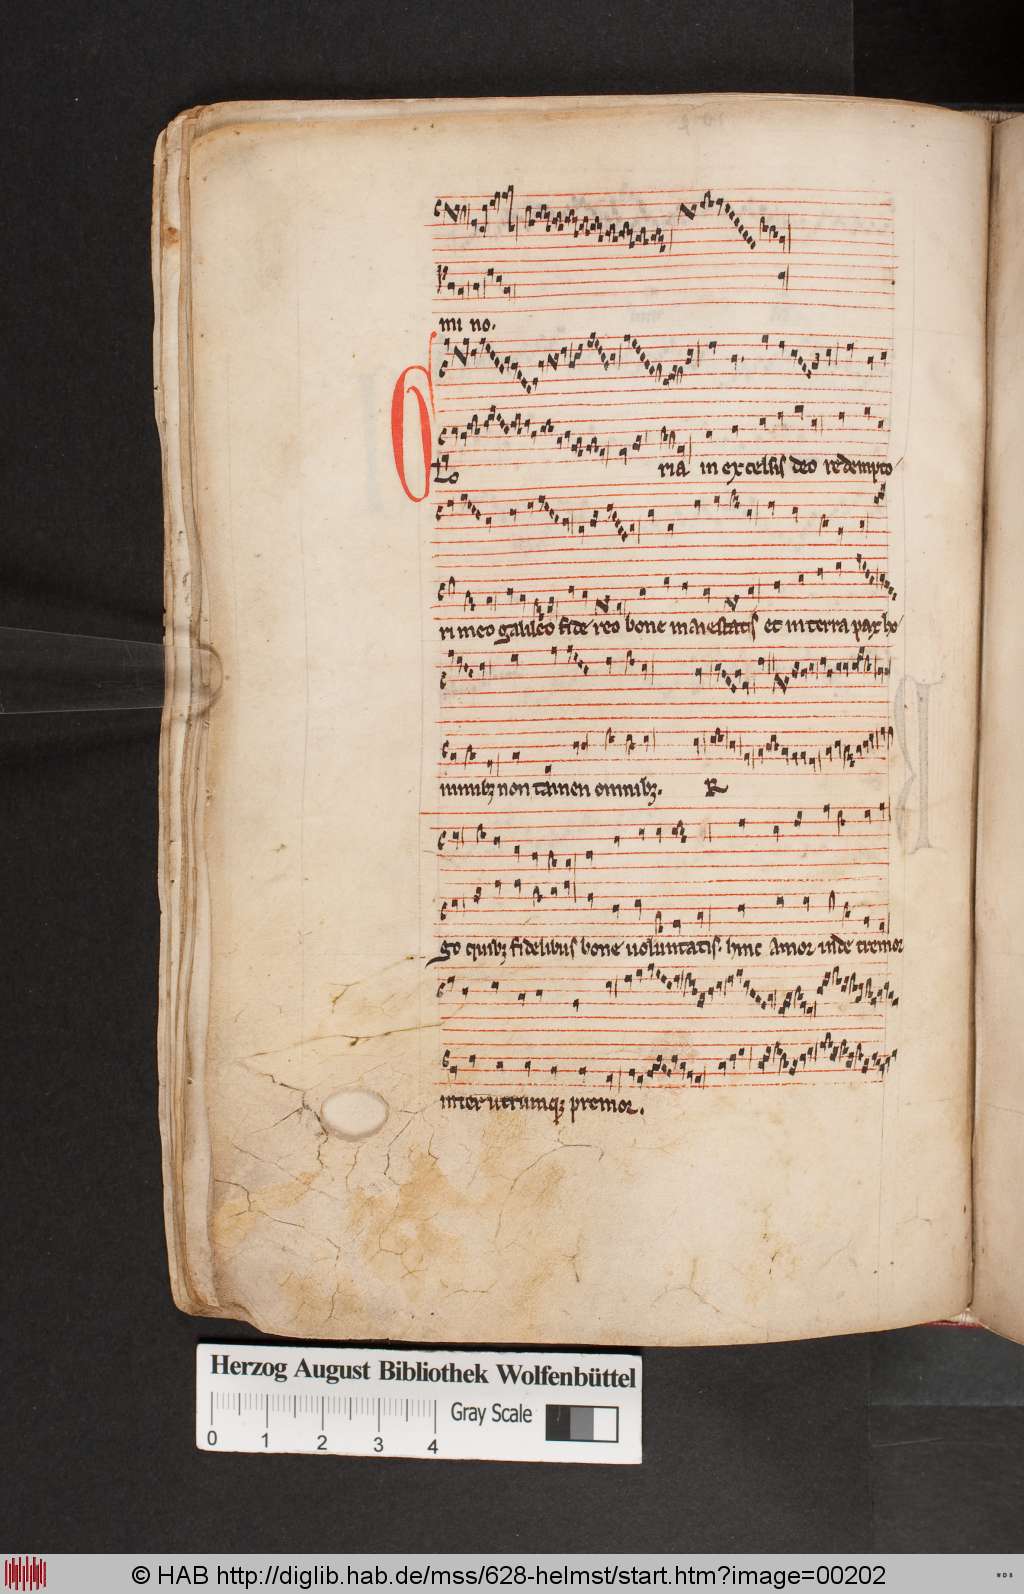 mi no.
O
Lo ria in excelsis deo redempto
ri meo galileo fide reo bone maiestatis et in terra pax ho
minibꝫ non tamen omnibꝫ. R
go quibꝫ fidelibus bone uoluntatis. hinc amor inde tremor
inter utrumqꝫ premor.
Herzog August Bibliothek Wolfenbüttel
Gray Scale
0 1 2 3 4
© HAB http://diglib.hab.de/mss/628-helmst/start.htm?image=00202